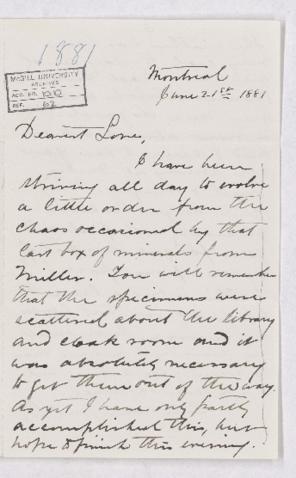 1881
McGILL UNIVERSITY
ARCHIVES
ACC. NO. 1010
REF. 62
Montreal
June 21st 1881
Dearest Love,
I have been
striving all day to evolve
a little order from the
chaos occasioned by that
last box of minerals from
Miller. You will remember
that the specimens were
scattered about the library
and cloak room and it
was absolutely necessary
to get them out of the way.
As yet I have only partly
accomplished this, but
hope to finish this evening.